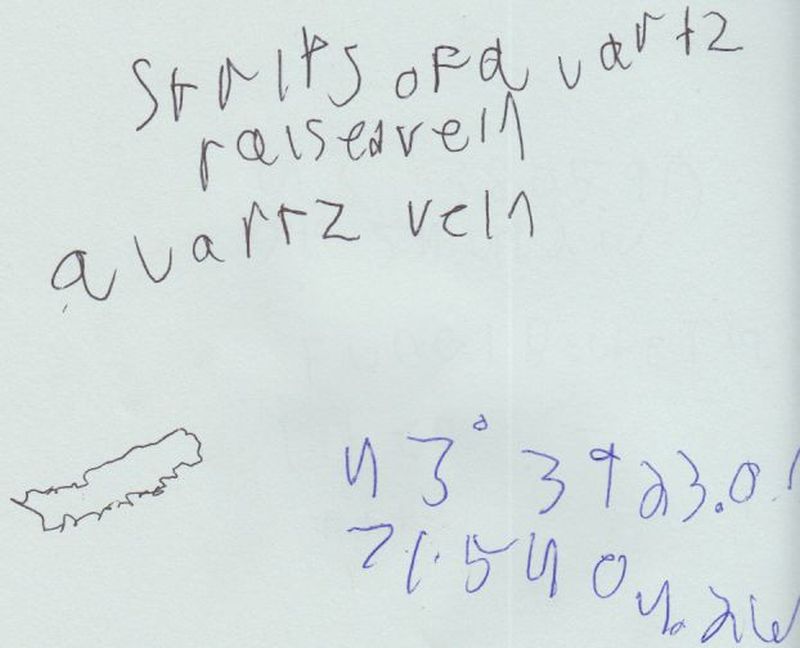 of quartz
raised vein
quartz vein
43° 39 23.0
71.54 04.2W